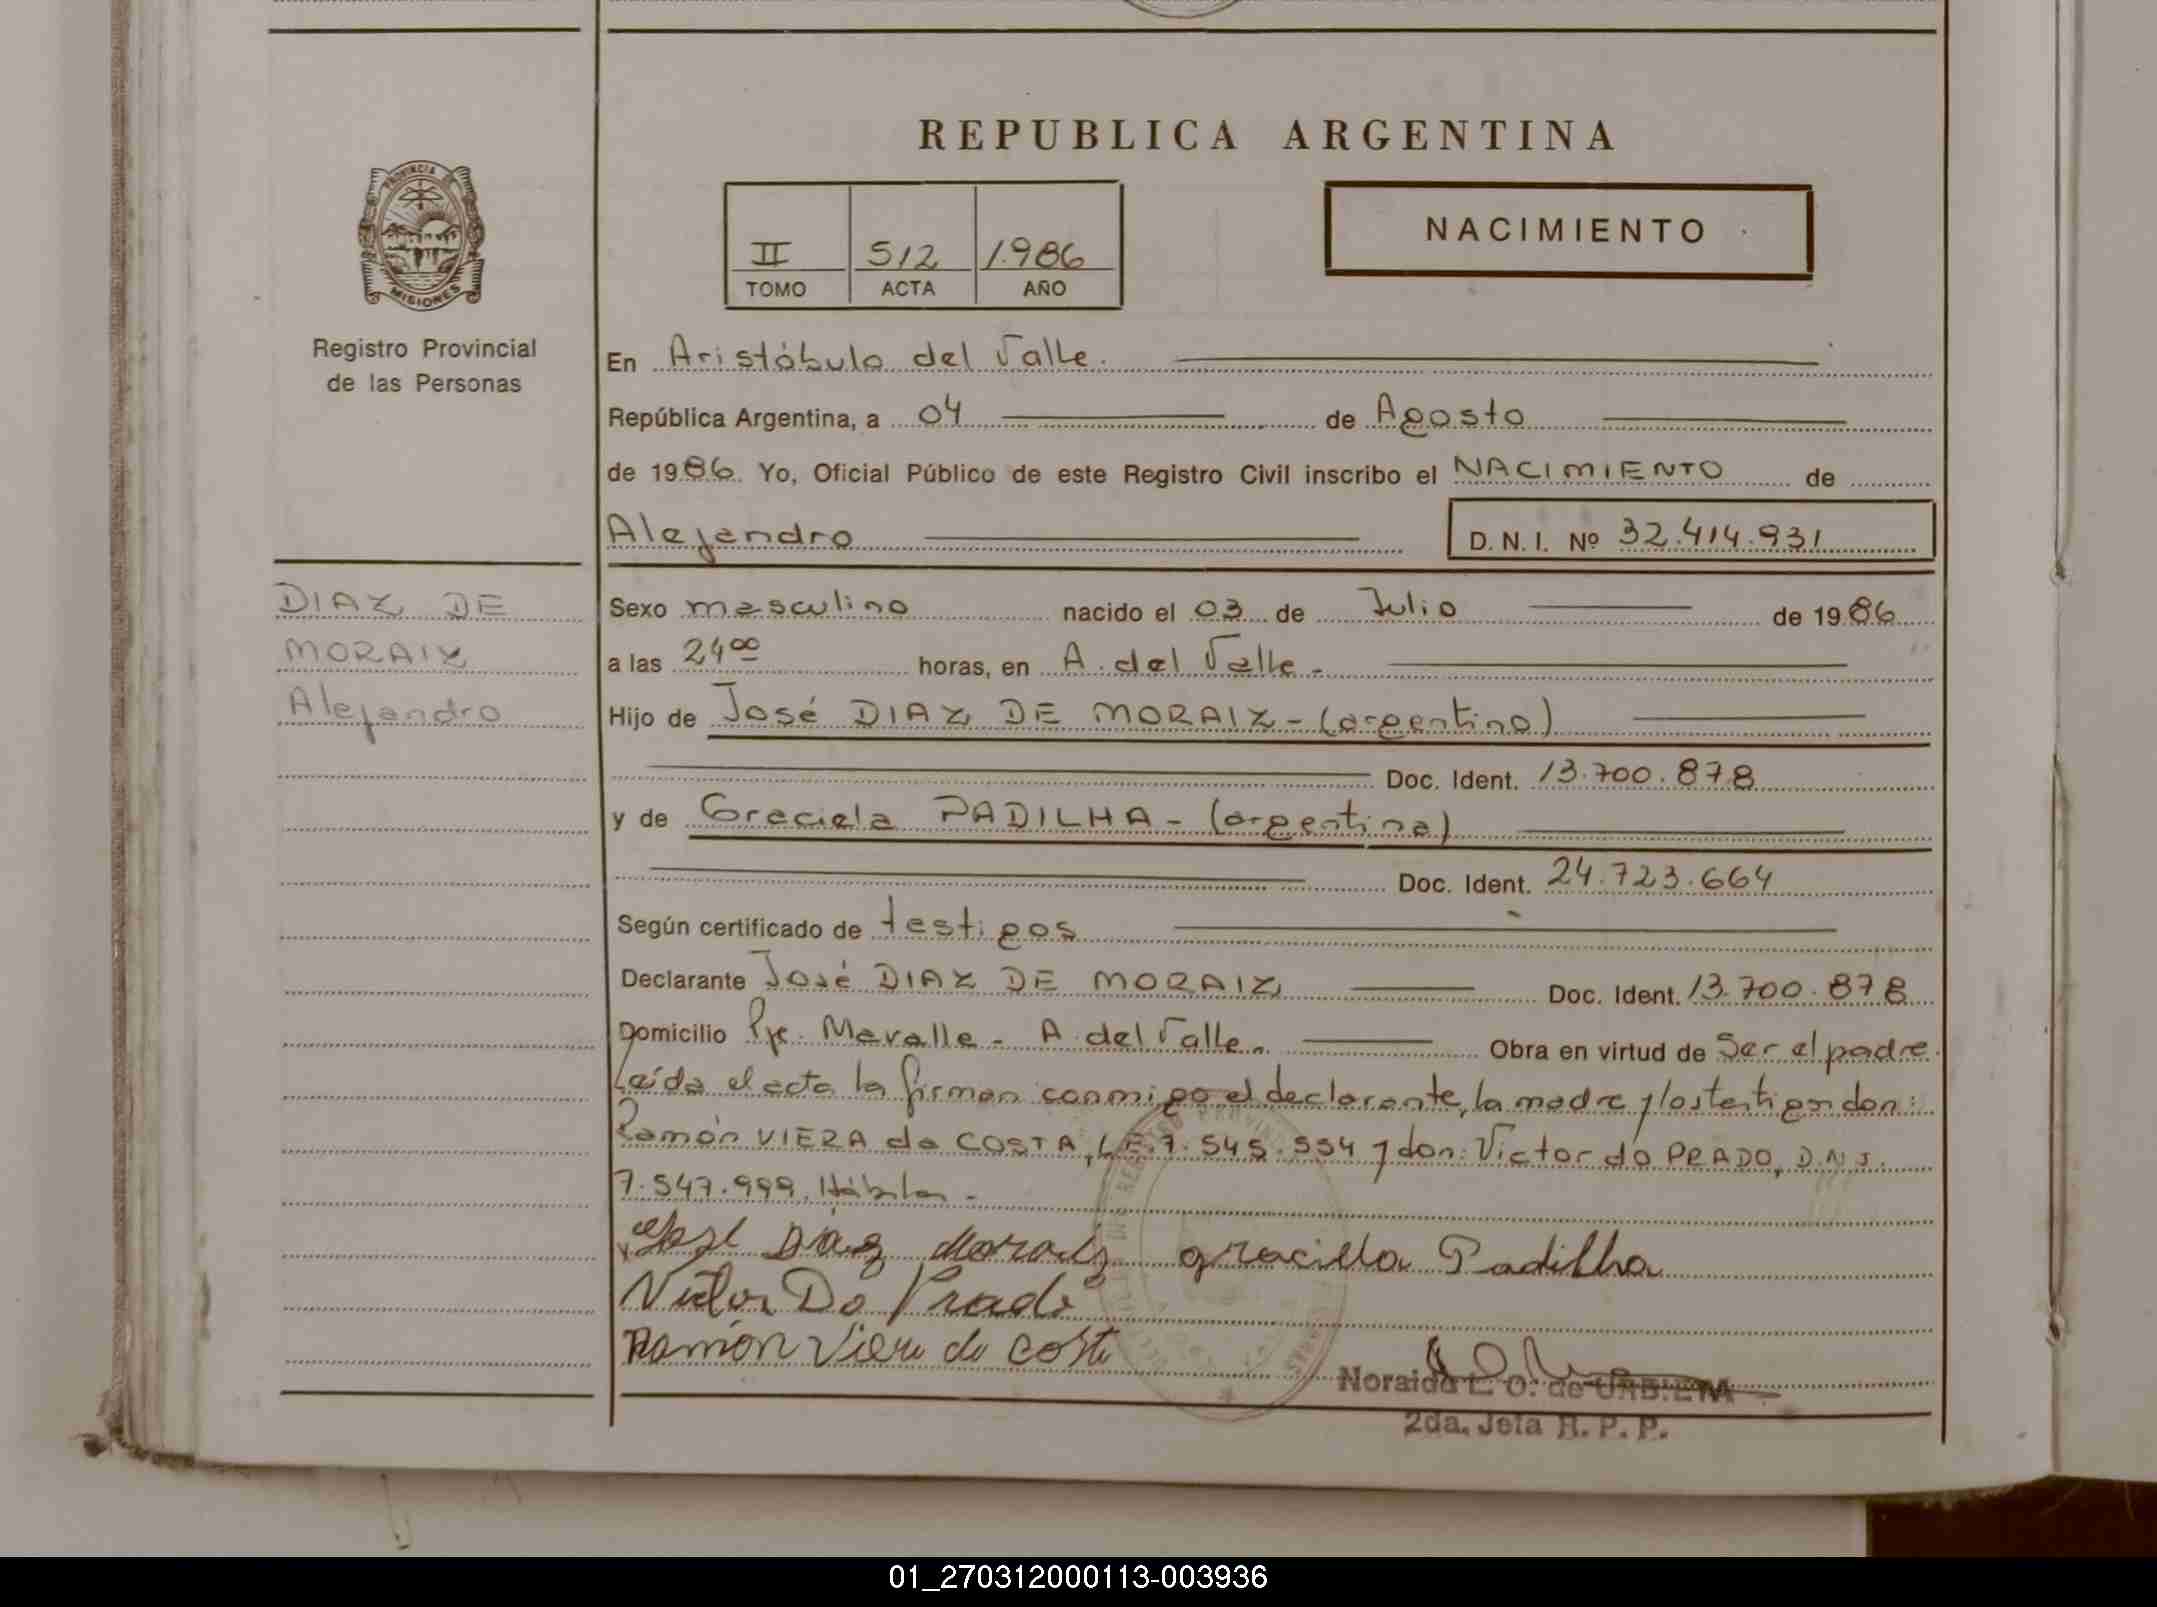 REPUBLICA ARGENTINA
PROVINCIA DE
MISIONES
Registro Provincial
de las Personas
II 512 1.986
TOMO ACTA AÑO
NACIMIENTO
En Aristóbulo del Valle.
República Argentina, a 04 de Agosto
de 1986. Yo, Oficial Público de este Registro Civil inscribo el NACIMIENTO de
Alejandro D. N. I. Nº 32.414.931
DIAZ DE
MORAIZ
Alejandro
Sexo masculino nacido el 03 de Julio de 1986
a las 24 00 horas, en A. del Valle.-
Hijo de José DIAZ DE MORAIZ - (argentino)
Doc. Ident. 13.700.878
y de Graciela PADILHA - (argentina)
Doc. Ident. 24.723.664
Según certificado de testigos
Declarante José DIAZ DE MORAIZ Doc. Ident. 13.700.878
Domicilio Pje. Mavalle - A. del Valle.- Obra en virtud de Ser el padre.
Leída el acta la firman conmigo el declarante, la madre y los testigos don:
Ramón VIERA da COSTA, L.E. 7.545.554 y don: Victor do PRADO, D.N.I.
7.547.999, Hábiles.-
José Díaz Moraiz graciela Padilha
Victor Do Prado
Ramón Viera da Costa
Noraida L. O. de
2da. Jefa R. P. P.
01_270312000113-003936